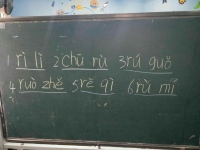 1 rì lì 2 chū rù 3 rú guǒ
4 ruò zhě 5 rè qì 6 rù mí